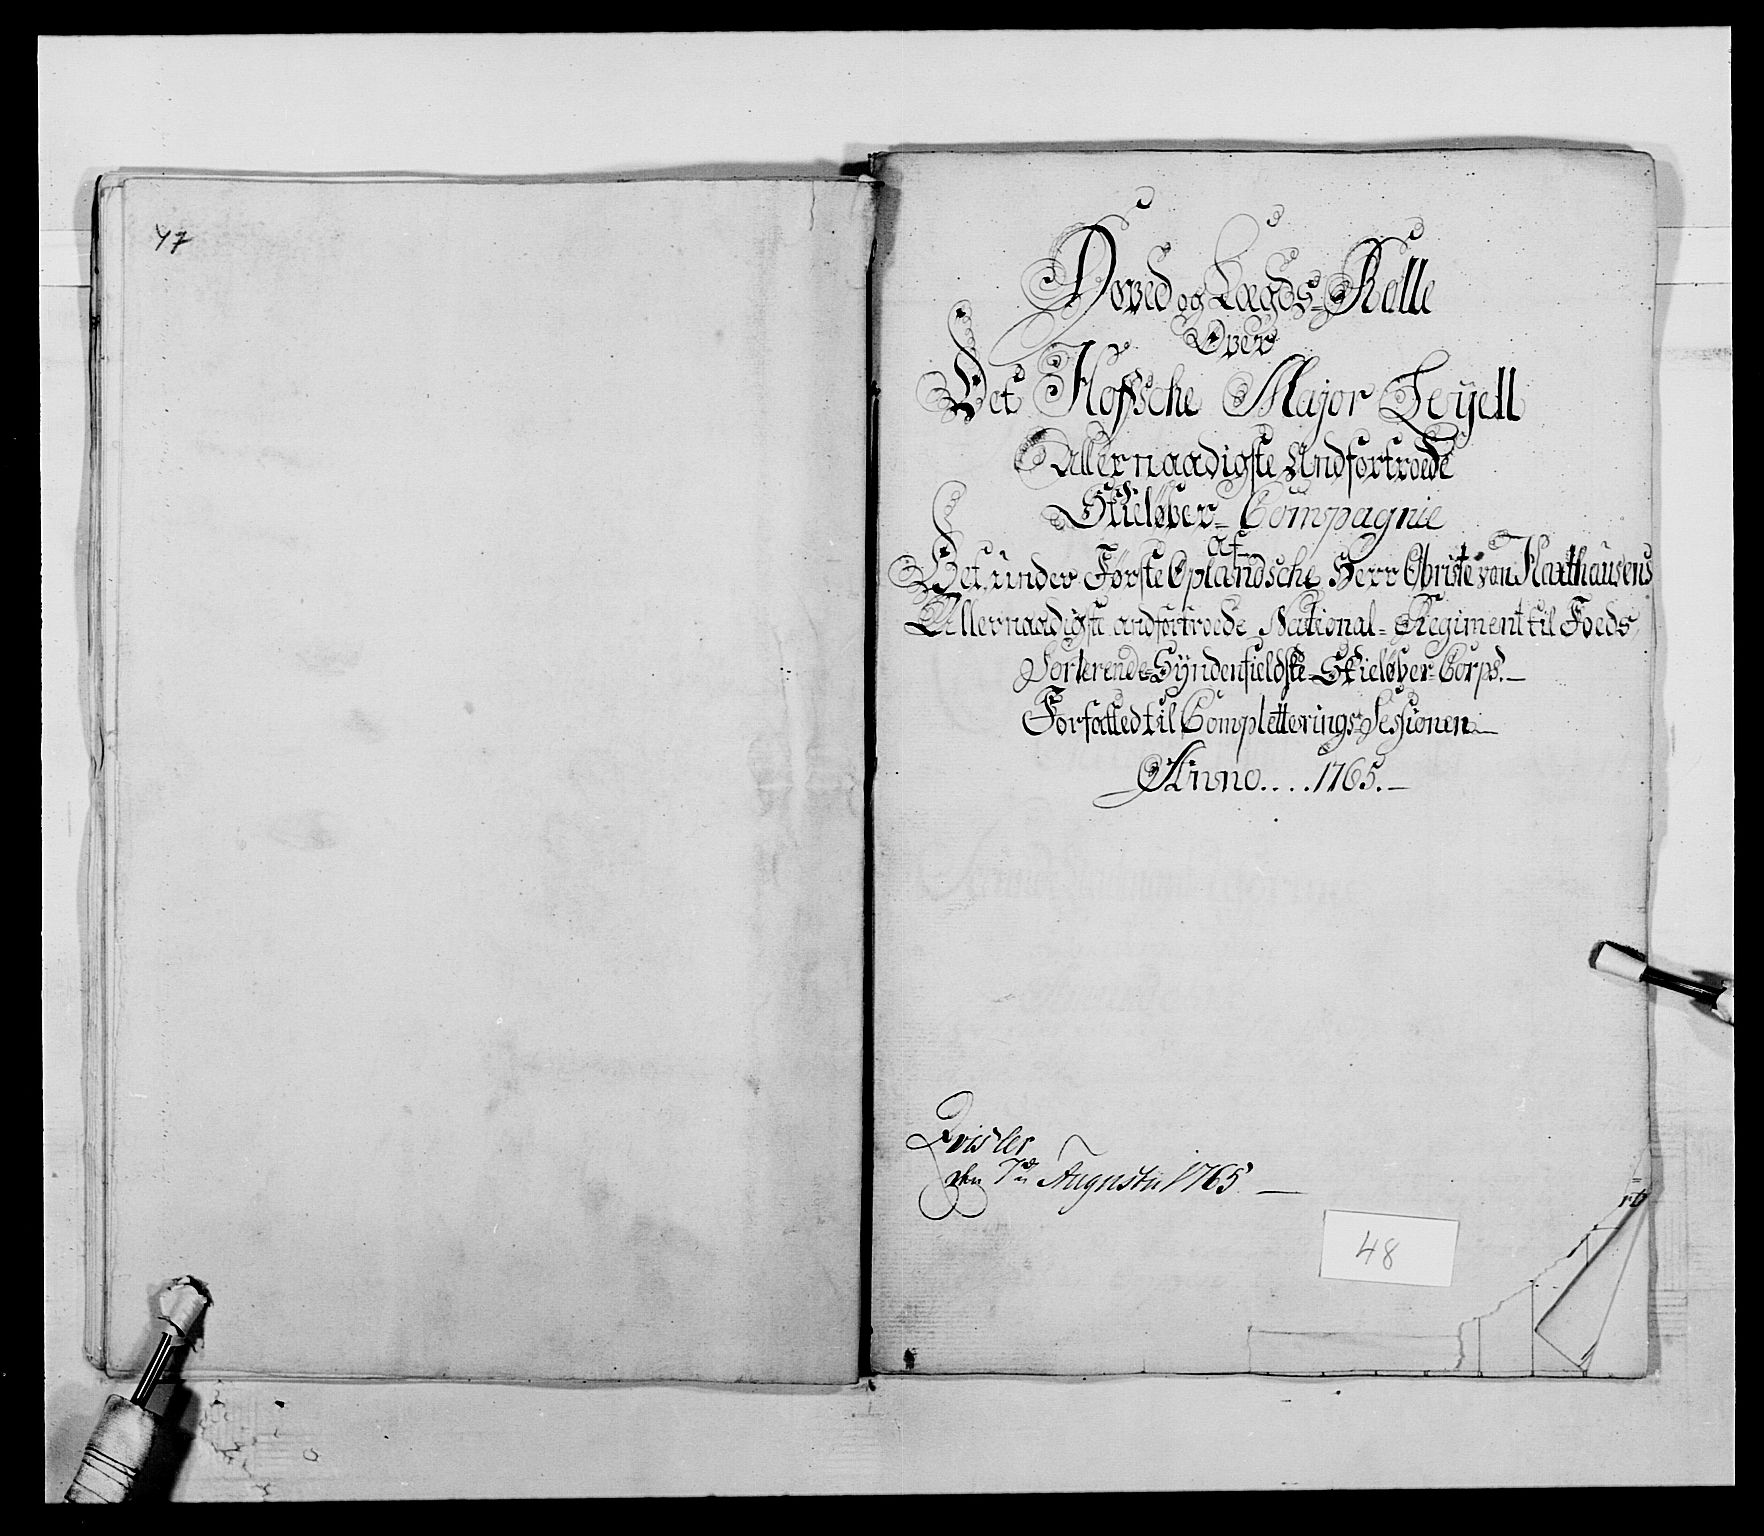 47
Hoved og Lægds-Rulle
Over
Det Hoffsche Major Seyell
Allernaadigste Andfortroede
Skieløber-Compagnie
af
Det under Første Oplandsche Herr Obriste von Haxthausens
Allernaadigste andfortroede National-Regiment til Foeds
Sorterende Syndenfieldske-Skieløber-Corps.
Forfatted til Completterings-Sessionen
Anno....1765.
Qvisler
den 7de Augusti 1765
48